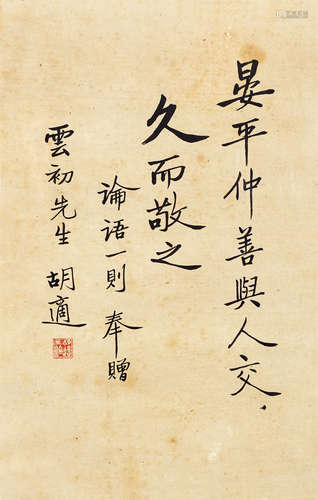 晏平仲善與人交，
久而敬之
論语一則 奉贈
雲初先生 胡適